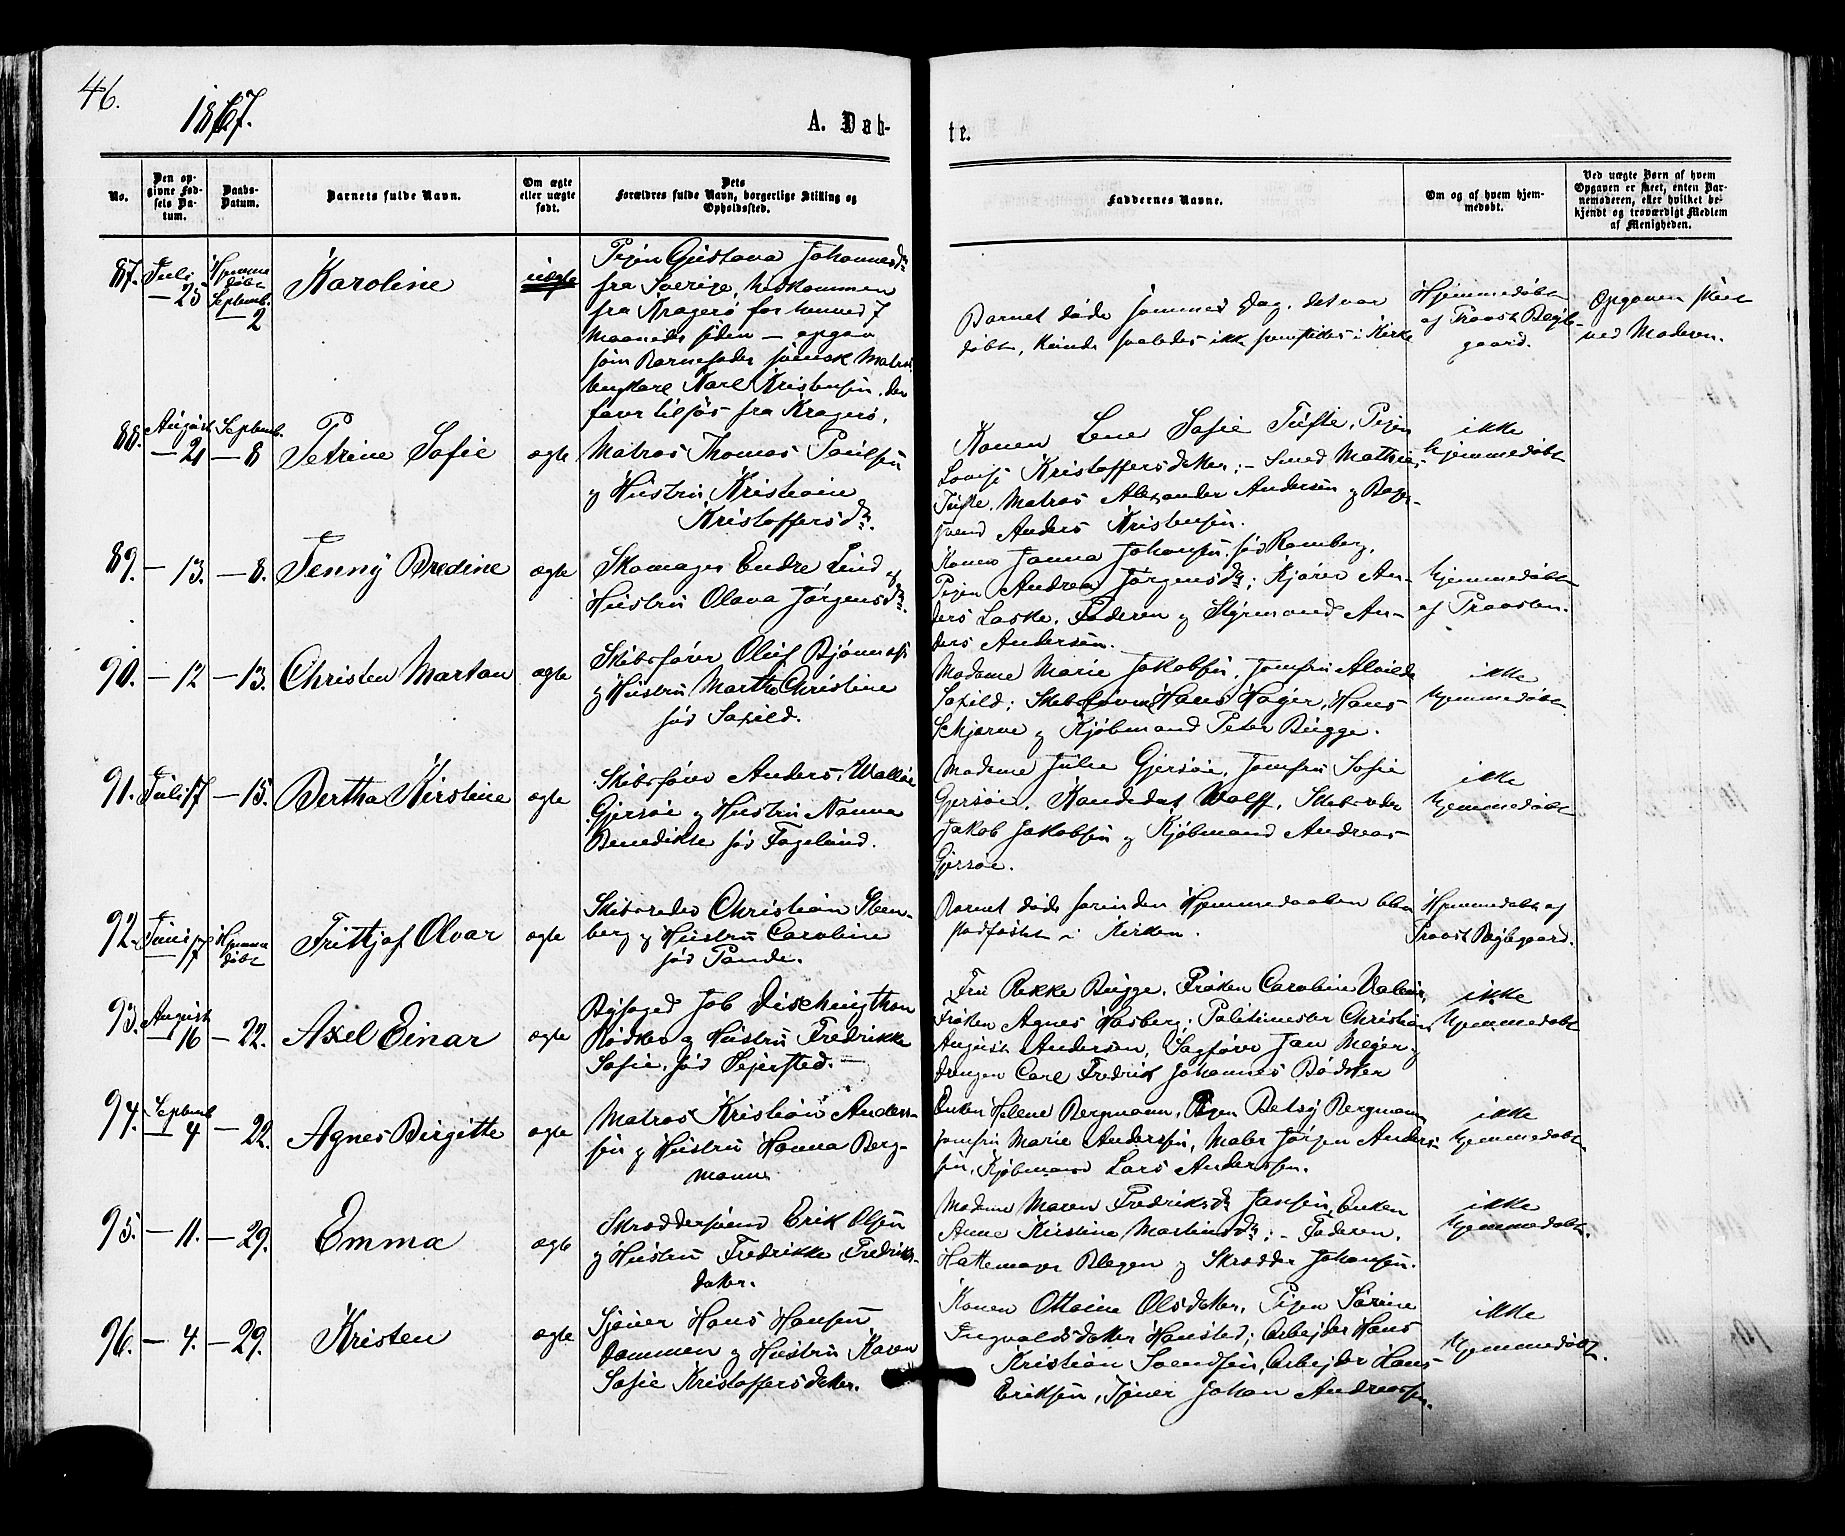 46.
1867.
A. Døb-
te.
No.
Den op-
givne Fød-
sels Da-
tum.
Daabs-
Datum.
Barnets fulde Navn.
Om ægte
eller uægte
født.
Dets
Forældres fulde Navn, borgerlige Stilling og
Opholdssted.
Faddernes Navne.
Om og af hvem hjem-
medøbt.
Ved uægte Børn af hvem
Opgaven er skeet, enten Bar-
nemoderen, eller hvilket be-
kjendt og troværdigt Medlem
af Menigheden.
87.
Juli
— 25
Hjemme
døbt
Septemb.
2
Karoline
uægte
Pigen Gustava Johannesdr
fra Sverige, hidkommen
fra Kragerø for henved 7
Maaneder siden — opgav
som Barnefader svensk Matros
Karl Kristensen, den
fra Kragerø.
Barnet døde samme Dag, det var
døbt, kunde saaledes ikke fremstilles i Kirke
Hjemmedøbt
af Provst Bøyle-
gaard.
Opgaven skeet
ved Moderen.
88.
August
— 21
Septemb.
— 8
Petrine Sofie
ægte
Matros Thomas Paulsen
og Hustru Kristiane
Kristoffersdr.
Konen Lene Sofie Tufte, Pigen
Lovise Kristoffersdatter; — Smed Mathias
Tufte, Matros Alexander Andersen og Bager-
svend Anders Kristensen.
ikke
hjemmedøbt
89.
— 13.
— 8.
Jenny Bredine
ægte
Skomager Endre Lind og
Hustru Olava Jørgensdr.
Konen Janna Johansen, fød Ramberg,
Pigen Andrea Jørgensdr; Kjører An-
ders Laske, Faderen og Styrmand An-
ders Andersen.
hjemmedøbt
af Provsten.
90.
— 12
— 13.
Christen Martan
ægte
Skibsfører Oluf Bjønnes
og Hustru Marthe Christine
fød Saxild.
Madame Marie Jakobsen, Jomfru Alvilde
Saxild; Skibsførerne Hans Høyer, Hans
Schjerve og Kjøbmand Peter Bugge.
ikke
hjemmedøbt.
91.
Juli 17
— 15.
Bertha Kirstine
ægte
Skibsfører Anders Walløe
Gjersøe og Hustru Nanna
Benedikte fød Fogelund.
Madame Julie Gjersøe, Jomfru Sofie
Gjersøe, Kandidat Wolff, Skibsreder
Jakob Jakobsen og Kjøbmand Andreas
Gjersøe.
ikke
hjemmedøbt
92.
Juni
17
Hjemme
døbt
Frithjof Olvar
ægte
Skibsreder Christian Sten-
berg og Hustru Caroline
fød Pande.
Barnet døde forinden Hjemmedaaben blev
stadfæstet i Kirken.
Hjemmedøbt af
Provst Bøylegaard.
93.
August
— 16
— 22.
Axel Einar
ægte
Byfoged Job Dischingthon
Bødtker og Hustru Fredrikke
Sofie, fød Hejersted. —
Fru Rikke Bugge, Frøken Caroline
Frøken Agnes Hasberg; Politimester Christian
August Andersen, Sagfører Jan Meyer og
Drengen Carl Fredrik Johannes Bødtker
ikke
hjemmedøbt
94.
Septemb
— 4
— 22.
Agnes Birgitte
ægte
Matros Kristian Anders-
sen og Hustru Hanna Berg-
mann.
Enken Helene Bergmann, Pigen Betsy Bergmann
Jomfru Marie Anderssen, Maler Jørgen Anders-
sen, Kjøbmand Lars Anderssen.
ikke
hjemmedøbt
95.
— 11.
— 29.
Emma
ægte
Skræddersvend Erik Olsen
og Hustru Fredrikke Fredriks-
datter.
Madame Maren Fredriksdr Jansen, Enken
Anne Kirstine Martinsdr; — Faderen,
Hattemager Blegen og Skrædder Johansen.
ikke
hjemmedøbt.
96.
— 4.
— 29.
Kristen
ægte
Sjøuer Hans Hansen
Dammen og Hustru Karen
Sofie Kristoffersdatter.
Konen Ottoine Olsdatter, Pigen Sørine
Ingvaldsdatter Hansted; Arbejder Hans
Kristian Svendsen, Arbejder Hans
Eriksen, Sjøuer Johan Andreassen.
ikke
hjemmedøbt.